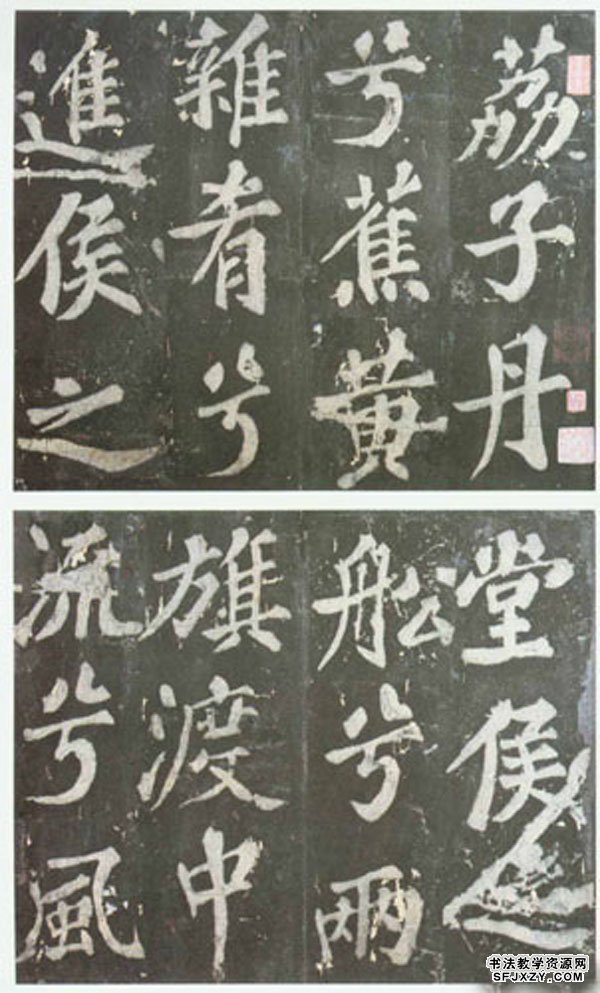 荔子丹
兮蕉黄
雜肴兮
進侯之
堂侯之
船兮兩
旗渡中
流兮風
书法教学资源网
SFJXZY.COM